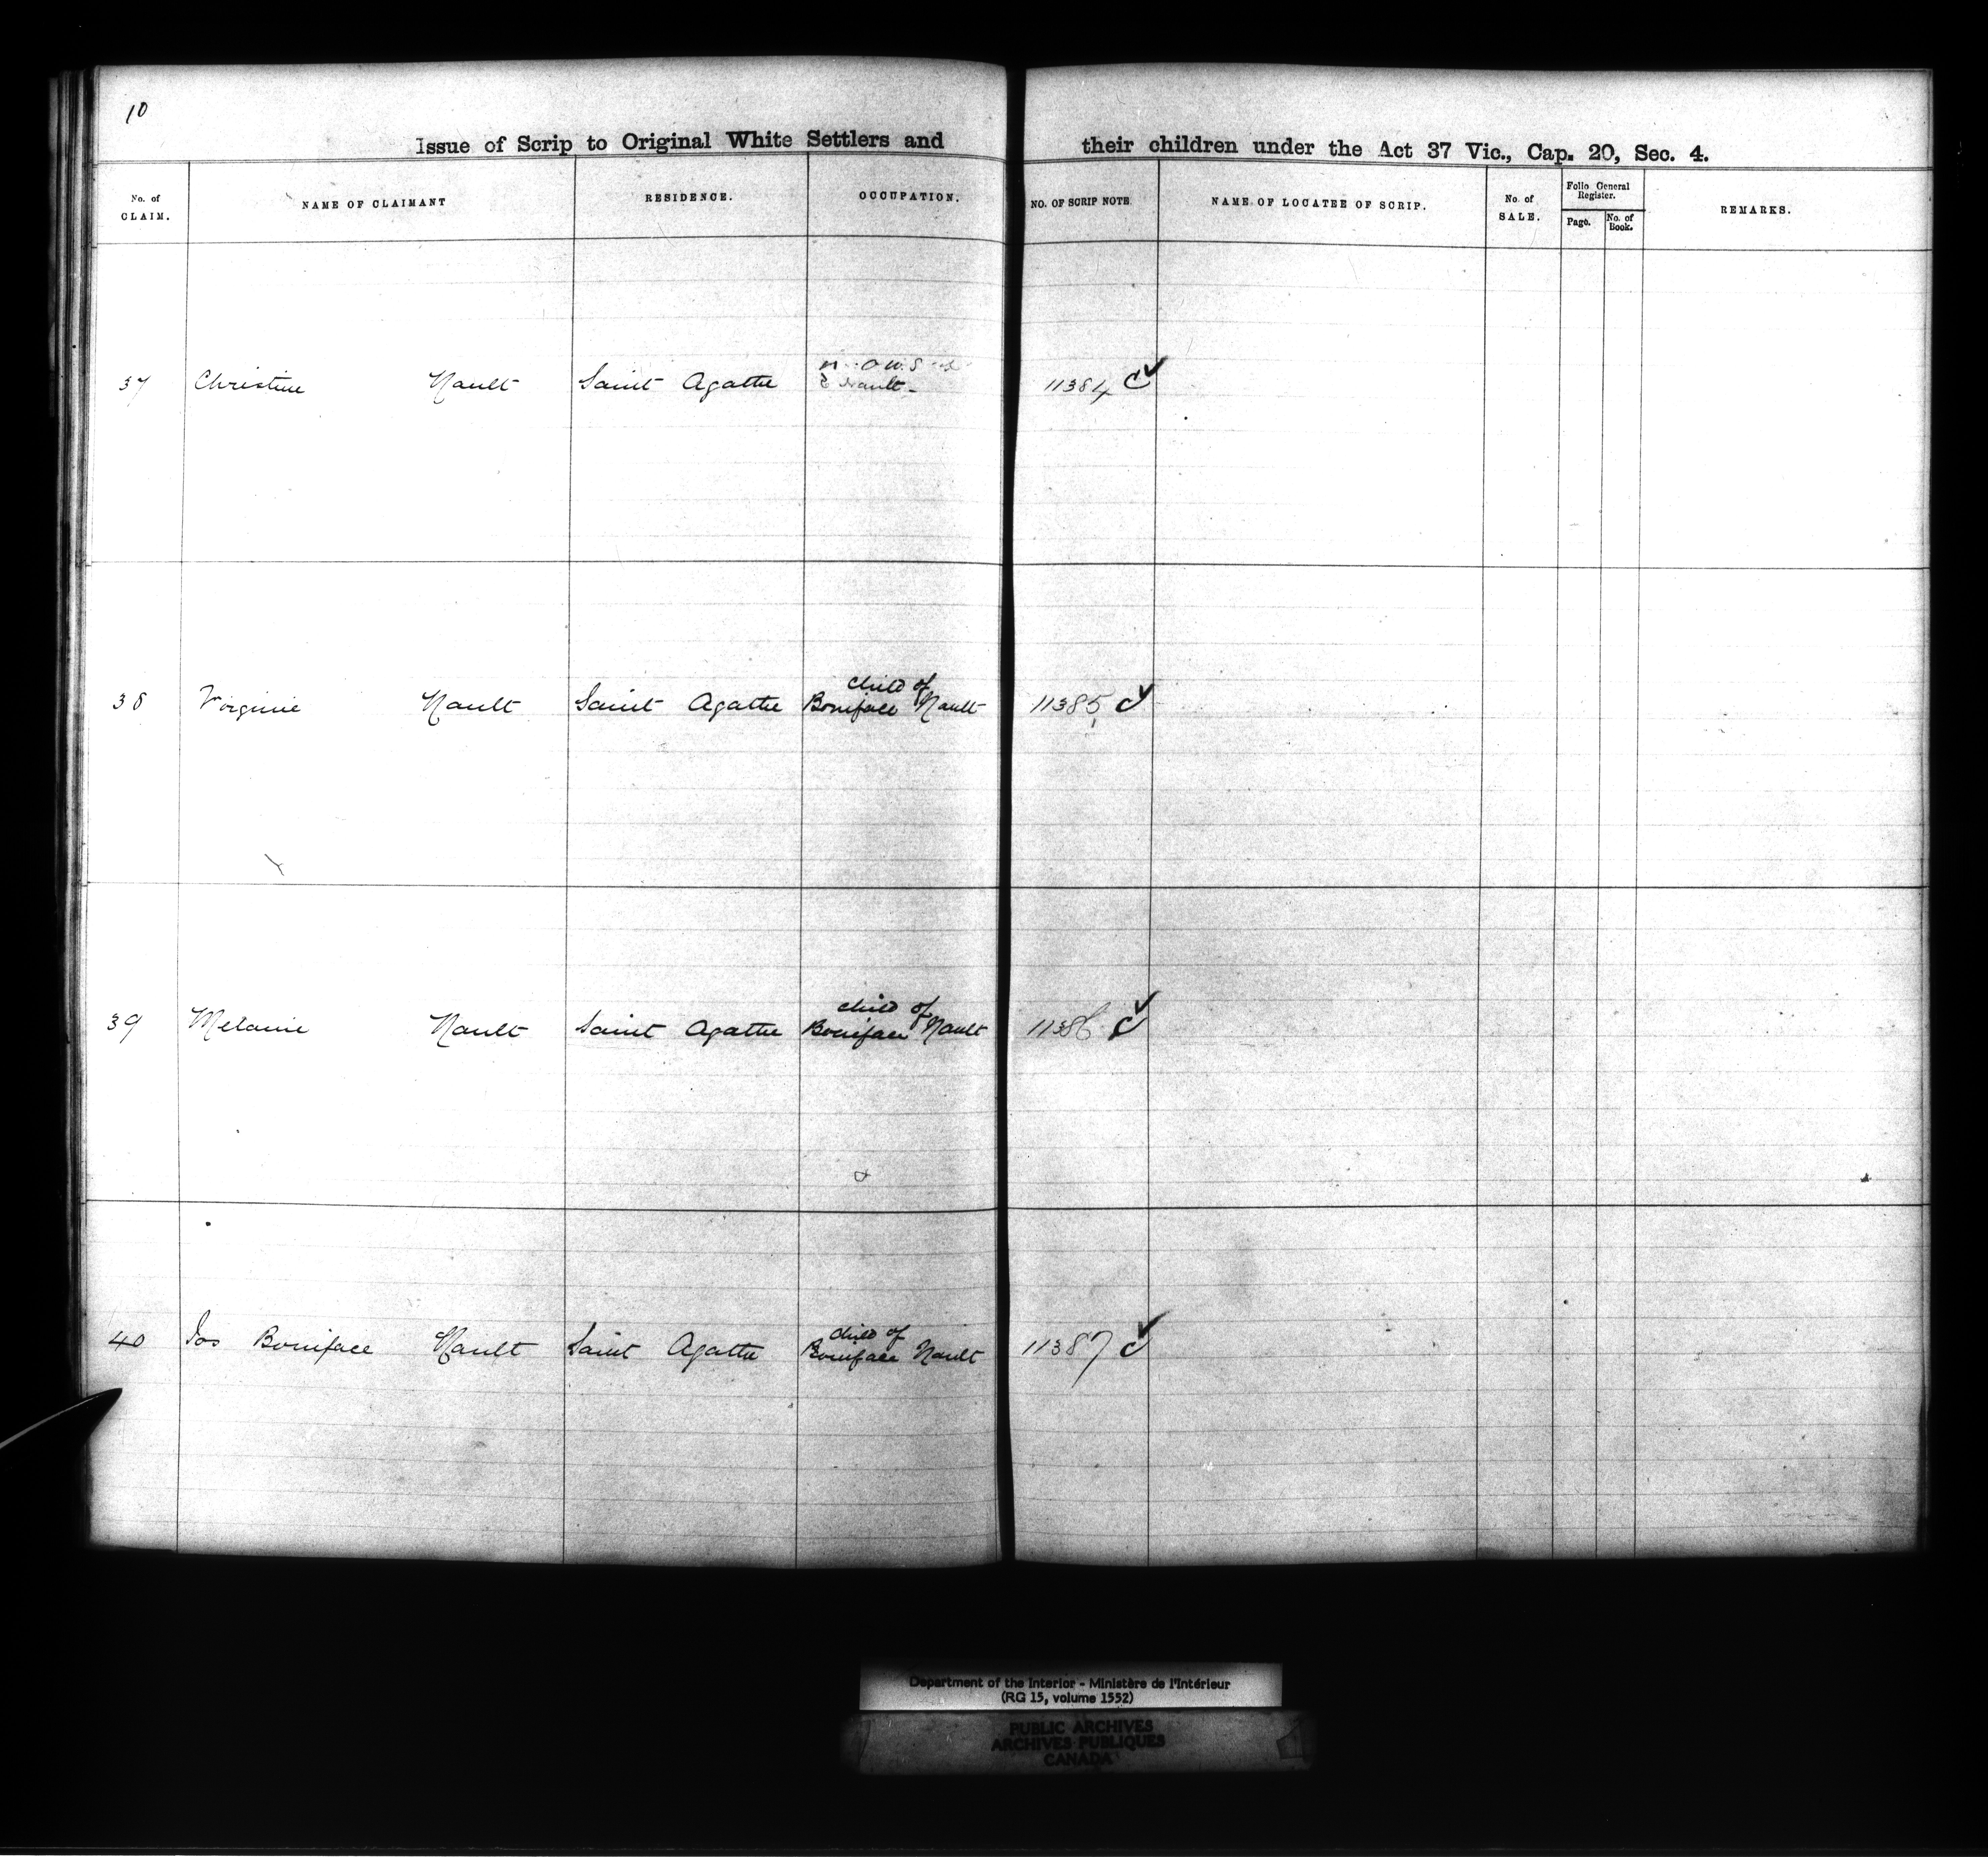 10
Issue of Scrip to Original White Settlers and their children under the Act 37 Vic., Cap. 20, Sec. 4.
No. of CLAIM. NAME OF CLAIMANT RESIDENCE. OCCUPATION. NO. OF SCRIP NOTE. NAME OF LOCATEE OF SCRIP. No. of SALE. Folio General Register. Page. No. of Book. REMARKS.
37 Christine Nault Saint Agathe Nault 11384 C ✓
child of
38 Virginie Nault Saint Agathe Boniface Nault 11385 C ✓
child of
39 Melanie Nault Saint Agathe Boniface Nault 11386 C ✓
child of
40 Jos Boniface Nault Saint Agathe Boniface Nault 11387 C ✓
Department of the Interior - Ministère de l'Intérieur
(RG 15, volume 1552)
PUBLIC ARCHIVES
ARCHIVES PUBLIQUES
CANADA